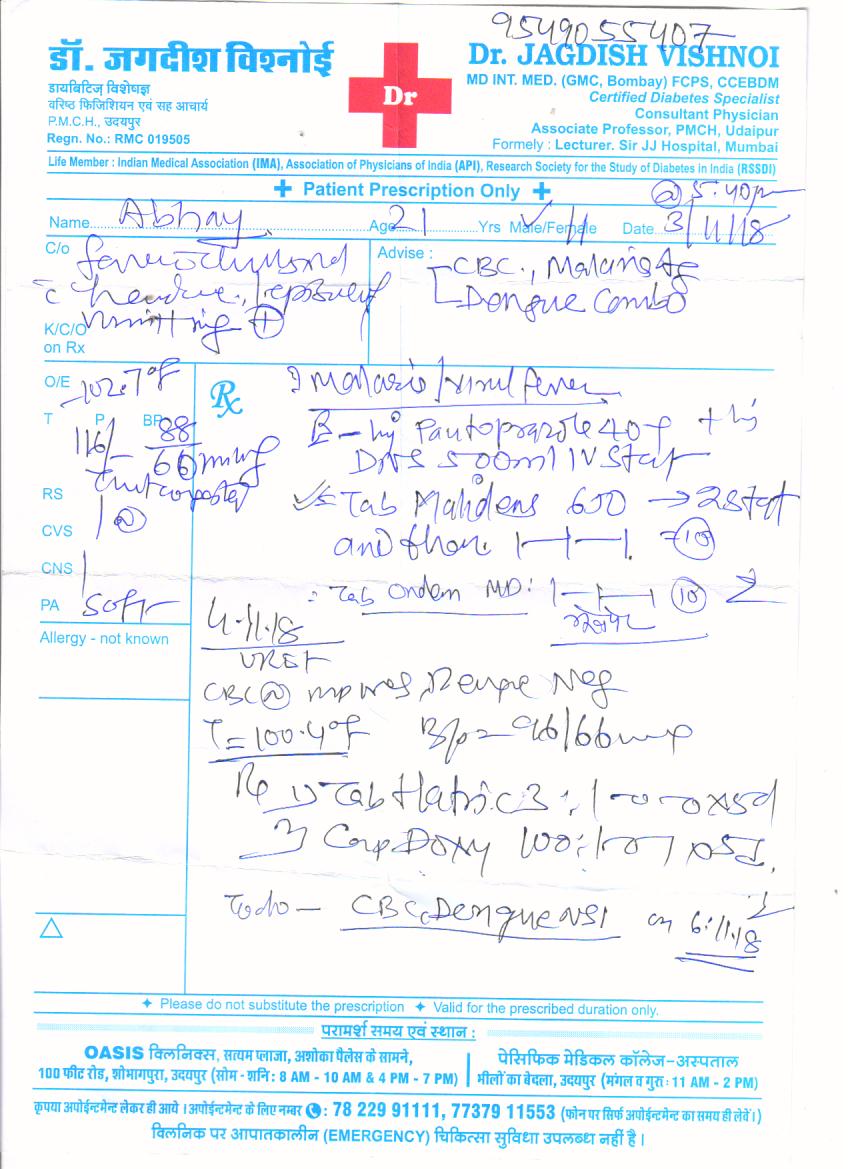 9549055407
डॉ. जगदीश विश्नोई
डायबिटिज़ विशेषज्ञ
वरिष्ठ फिजिशियन एवं सह आचार्य
P.M.C.H., उदयपुर
Regn. No.: RMC 019505
Dr
Dr. JAGDISH VISHNOI
MD INT. MED. (GMC, Bombay) FCPS, CCEBDM
Certified Diabetes Specialist
Consultant Physician
Associate Professor, PMCH, Udaipur
Formely : Lecturer. Sir JJ Hospital, Mumbai
Life Member : Indian Medical Association (IMA), Association of Physicians of India (API), Research Society for the Study of Diabetes in India (RSSDI)
+ Patient Prescription Only +
@ 5:40pm
Name Abhay Age 21 Yrs Male/Female Date 3/11/18
C/o
vomitting +
K/C/O
on Rx
Advise :
CBC., Malaria Ag
Dengue Combo
O/E 102.7°F
T P BP
116/- 88/66 mmHg
RS
CVS
CNS
PA Soft
Allergy - not known
Rx
? Malaria / viral fever
Inj Pantoprazole 40 + Inj
DNS 500ml IV Stat
Tab 650 → 2 Stat
and then 1-1-1 10
Tab Ondem MD: 1-1-1 10
4.11.18
CBC N Dengue Neg
T = 100.4°F B/p = 96/66
1) Tab : 1-0-0 x5d
2) Cap Doxy 100: 1-0-1
To do — CBC, Dengue NS1 on 6.11.18
✦ Please do not substitute the prescription ✦ Valid for the prescribed duration only.
परामर्श समय एवं स्थान :
OASIS क्लिनिक्स, सत्यम प्लाजा, अशोका पैलेस के सामने,
100 फीट रोड, शोभागपुरा, उदयपुर (सोम - शनि: 8 AM - 10 AM & 4 PM - 7 PM)
पेसिफिक मेडिकल कॉलेज-अस्पताल
भीलों का बेदला, उदयपुर (मंगल व गुरु : 11 AM - 2 PM)
कृपया अपोईन्टमेन्ट लेकर ही आये । अपोईन्टमेन्ट के लिए नम्बर : 78 229 91111, 77379 11553 (फोन पर सिर्फ अपोईन्टमेन्ट का समय ही लेवें।)
क्लिनिक पर आपातकालीन (EMERGENCY) चिकित्सा सुविधा उपलब्ध नहीं है ।